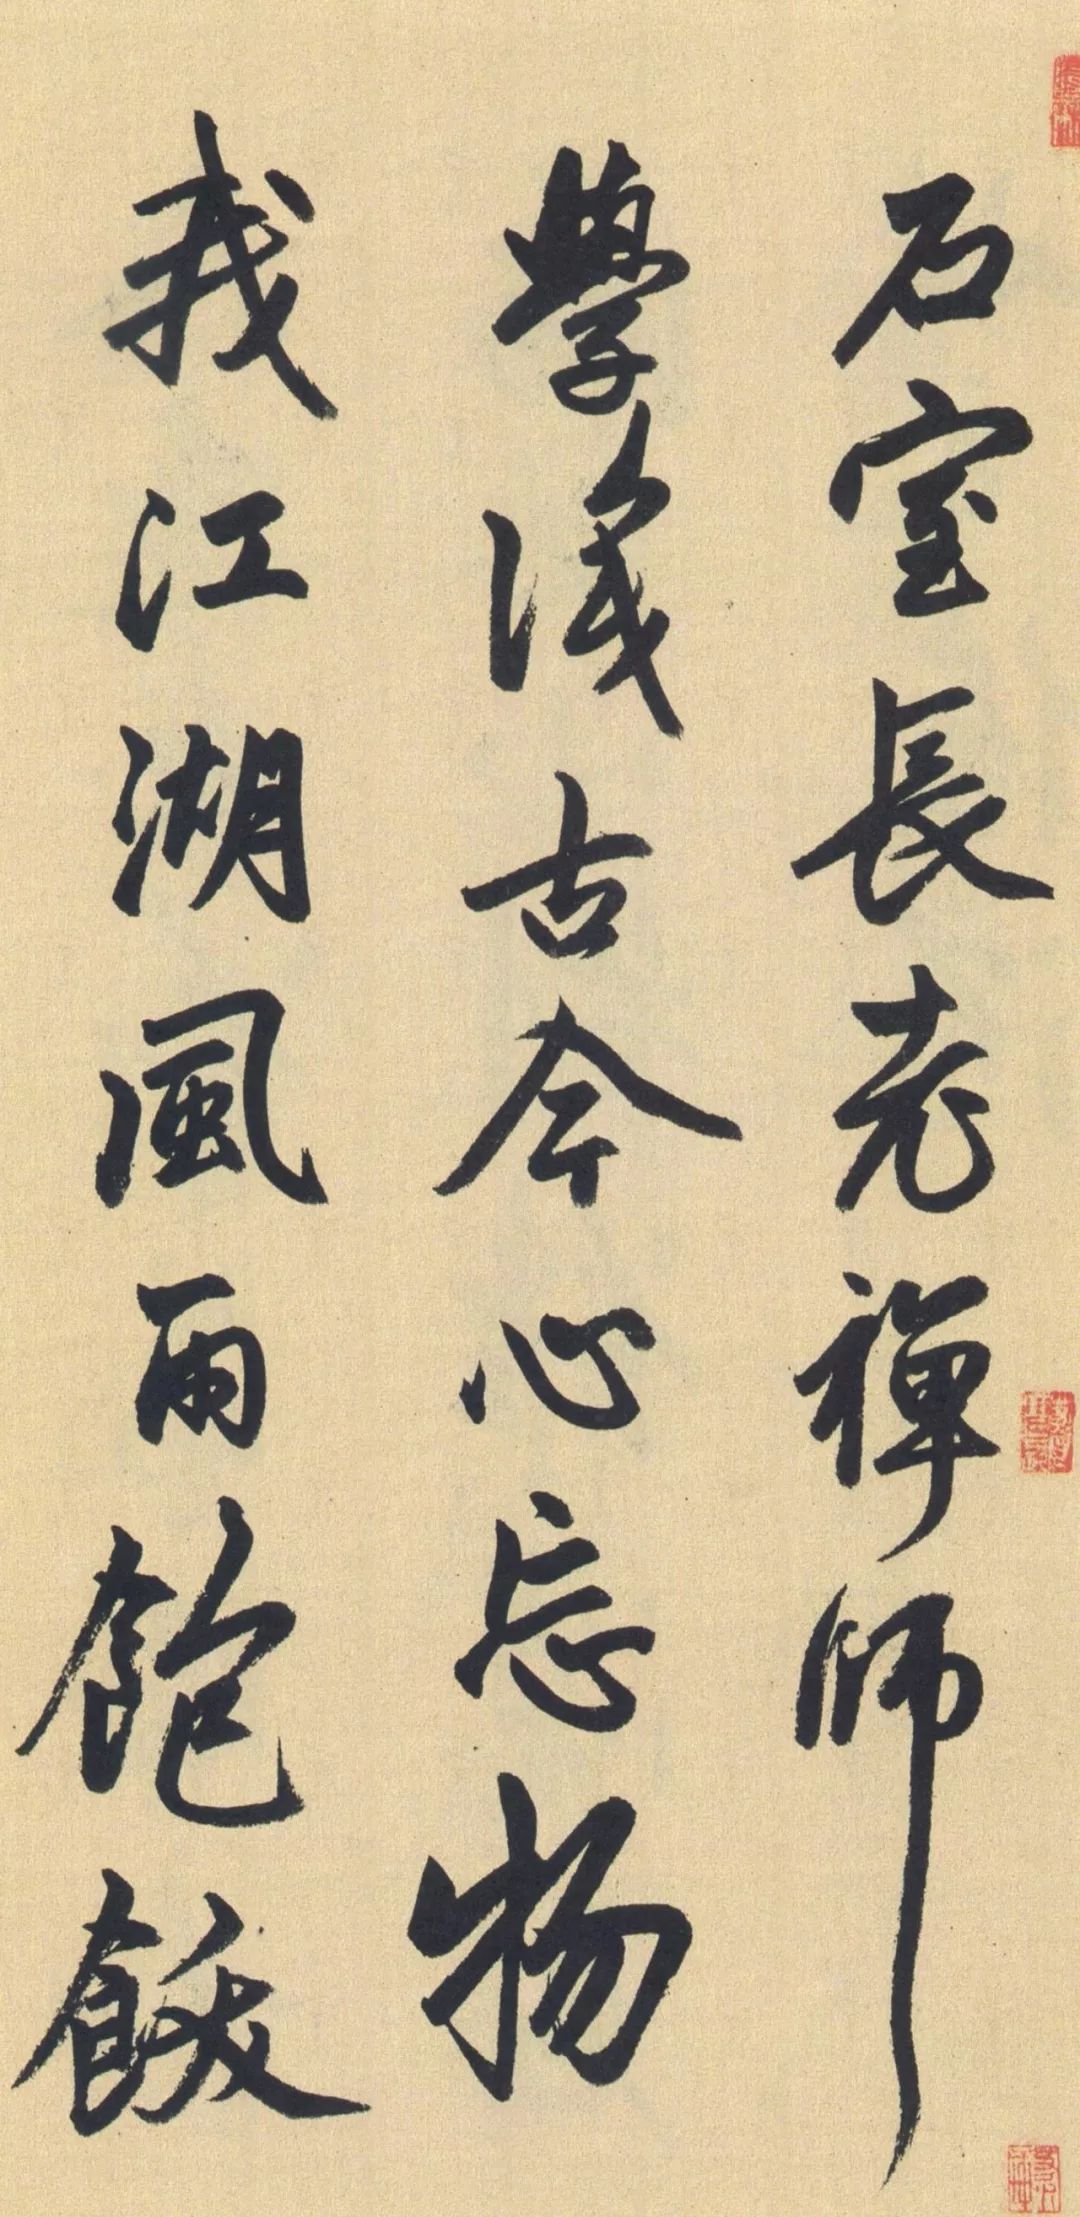 石室長老禪師
學識古今心忘物
我江湖風雨飽餕